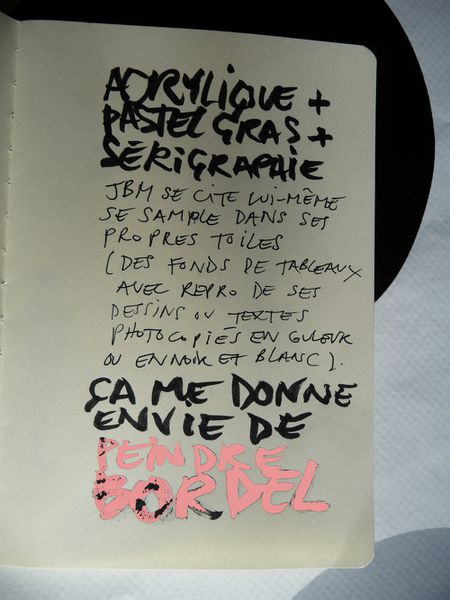 ACRYLIQUE +
PASTEL GRAS +
SÉRIGRAPHIE
JBM SE CITE LUI-MÊME
SE SAMPLE DANS SES
PROPRES TOILES
(DES FONDS DE TABLEAUX
AVEC REPRO DE SES
DESSINS OU TEXTES
PHOTOCOPIÉS EN COULEUR
OU EN NOIR ET BLANC).
ÇA ME DONNE
ENVIE DE
PEINDRE
BORDEL